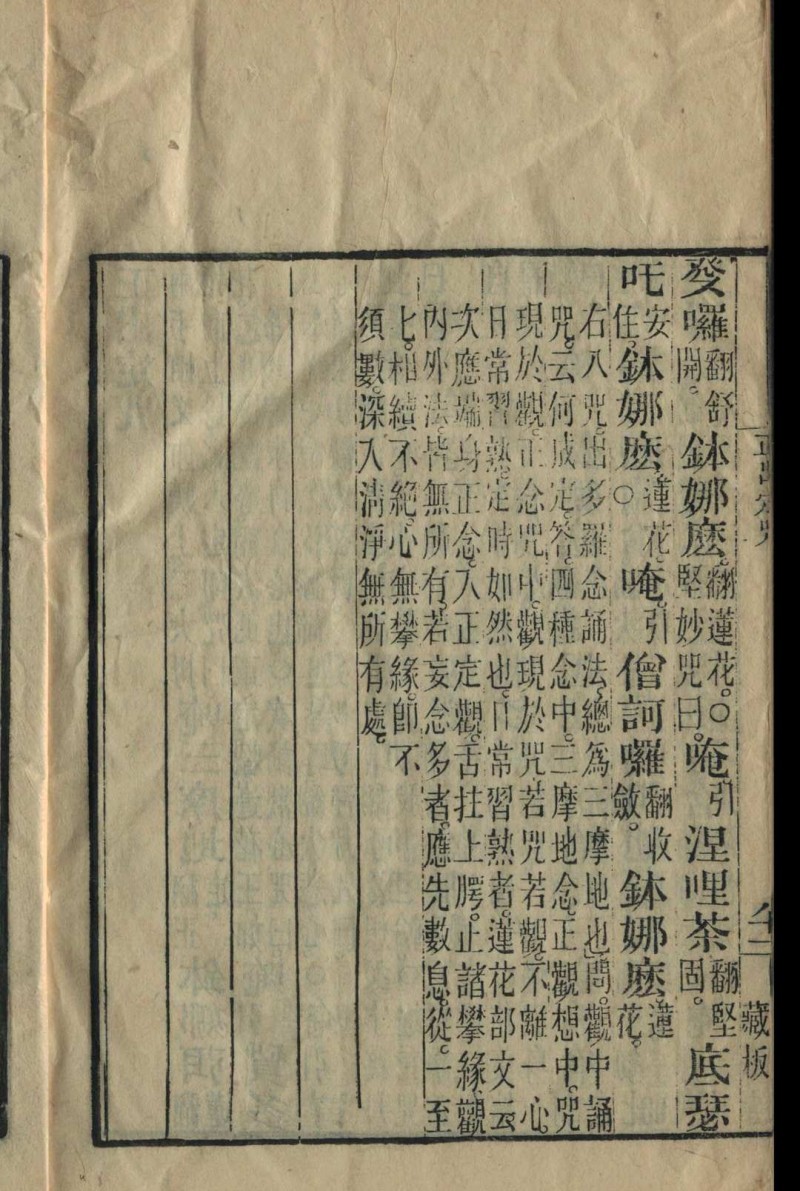 藏板
癹囉翻舒開。鉢娜麽。翻蓮花。○堅妙咒曰。唵引涅哩茶翻堅固。底瑟
吒安住。鉢娜麽蓮花○唵引僧訶囉翻收斂。鉢娜麽蓮花。
右八咒。出多羅念誦法。總爲三摩地也。問。觀中誦
咒。云何成定。答。四種念中。三摩地念。正觀想中。咒
現於觀。正念咒中。觀現於咒。若咒若觀。不離一心。
日常習熟。定時如然也。日常習熟者。蓮花部文云
次應端身正念。入正定觀。舌拄上腭。止諸攀緣。觀
內外法。皆無所有。若妄念多者。應先數息。從一至
七。相續不絕。心無攀緣。卽不
須數。深入清淨無所有處。